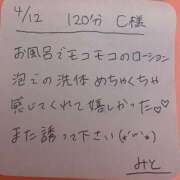 4/12 120分 C様
お風呂でモコモコのローション
泡での洗体めちゃくちゃ
感じてくれて嬉しかった♡♡
また誘って下さい(*ˊᵕˋ*)
みと